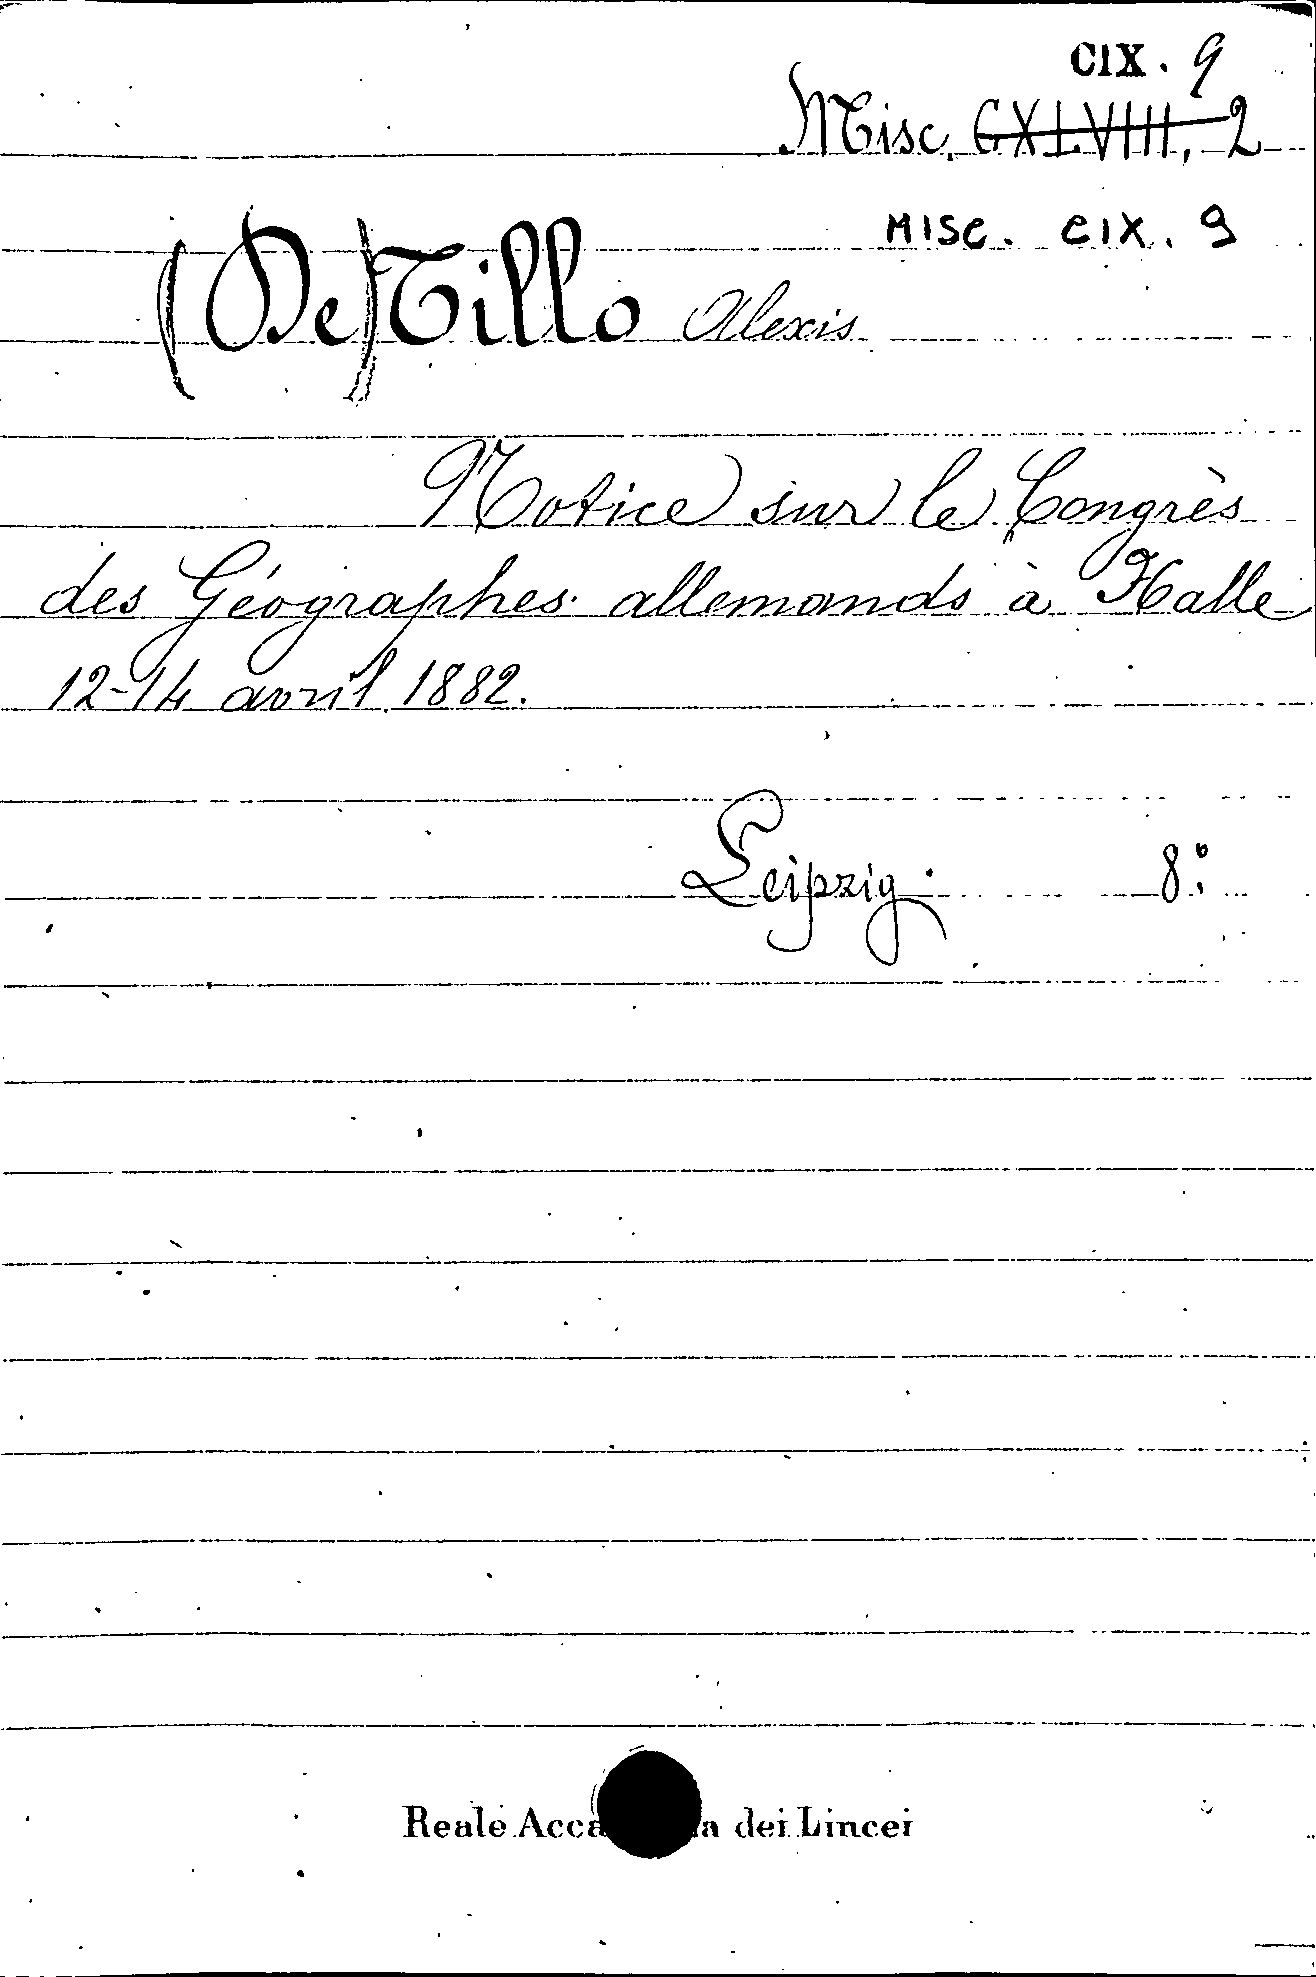 CIX. 9
Misc. CXLVIII, 2
MISC. CIX. 9
(De) Tillo Alexis
Notice sur le Congrès
des Géographes allemands à Halle
12-14 avril 1882.
Leipzig. 8°
Reale Acca a dei Lincei